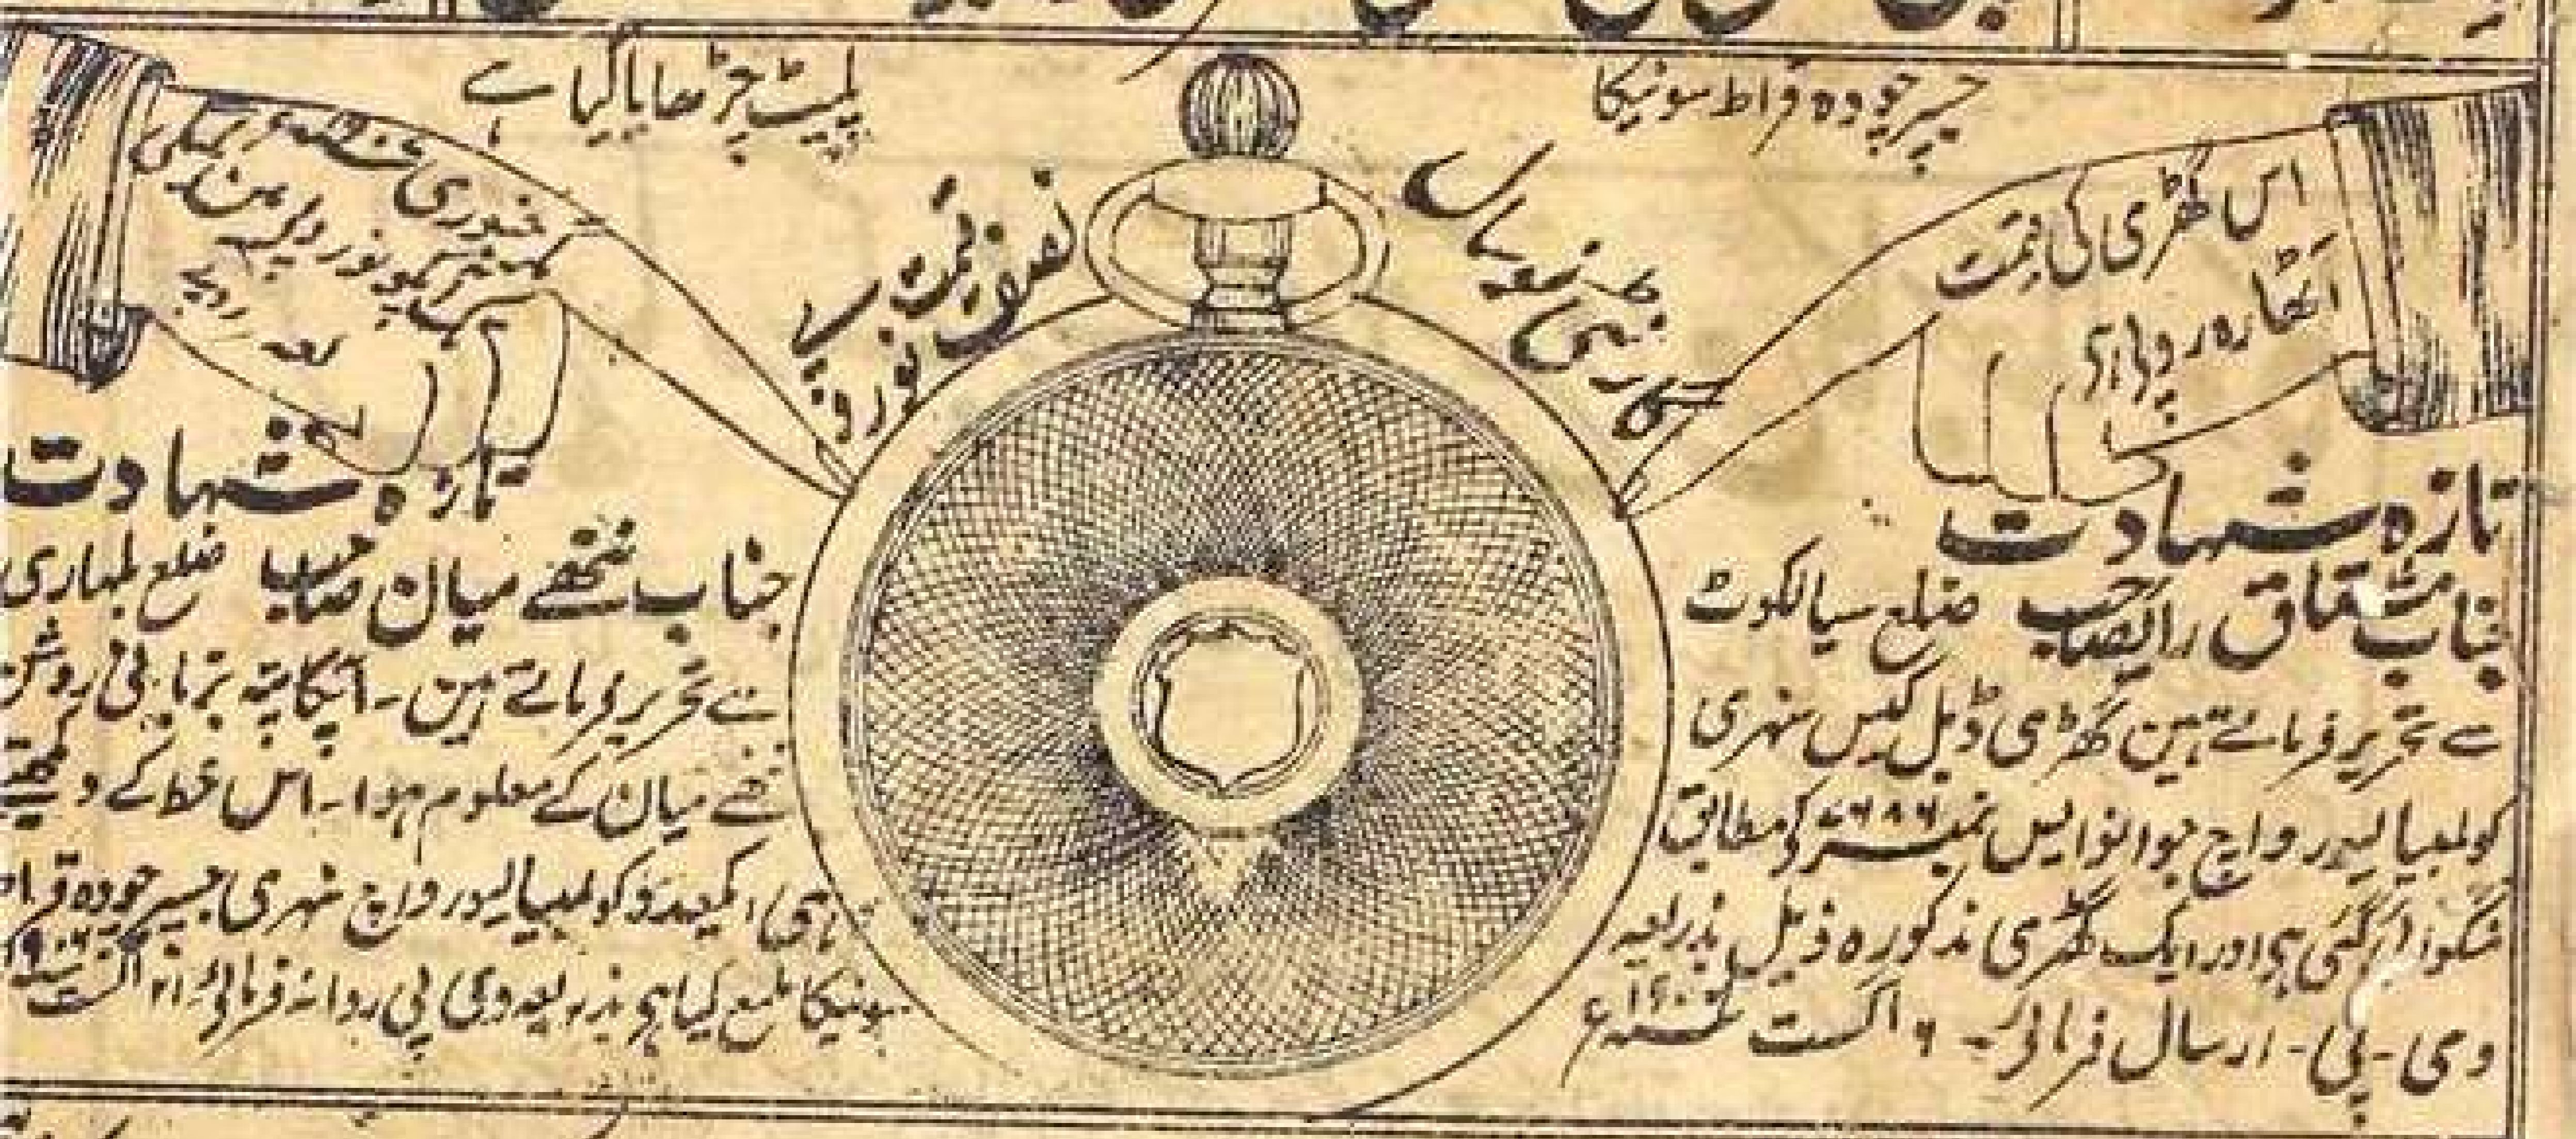 جسپر چودہ قراط سونیکا
پلیٹ چڑھایا گیا ہے
اس گھڑی کی قیمت
اٹھارہ روپیہ ہی
گارنٹی نو سال
نصف قیمت ہے
نو روپیہ
جنوری
تازہ شہادت
جناب مشتاق رائے صاحب ضلع سیالکوٹ
سے تحریر فرماتے ہین گھڑی ڈبل کیس سنہری
کولمبیا لیور واچ جو انوایس نمبر ۶۸۶ کے مطابق
منگوائی گئی ہی اور ایک گھڑی مذکورہ ذیل بذریعہ
وی - پی - ارسال فرمائے - ۶ اگست
تازہ شہادت
جناب ننھے میان صاحب ضلع بلہاری
سے تحریر فرماتے ہین - آپکا پتہ بزبانی روشن
ننھے میان کے معلوم ہوا - اس خط کے دیکھتے
ہی ایکعدد کولمبیا لیور واچ سنہری جسپر چودہ قراط
سونیکا ملمع کیا ہی بذریعہ وی پی روانہ فرمائے ۲۱ اگست